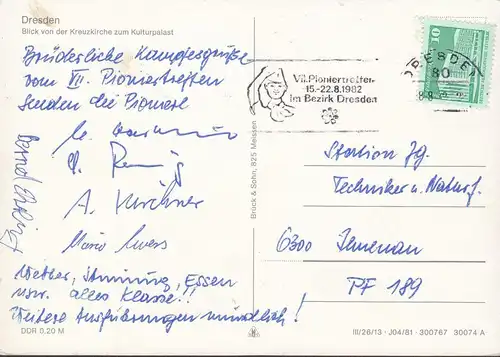 Dresden
Blick von der Kreuzkirche zum Kulturpalast
Brüderliche Kampfesgrüße
vom VII. Pioniertreffen
senden die Pioniere
A. Kirchner
Wetter, Stimmung, Essen
usw. alles Klasse!!
Weitere Ausführungen mündlich!
DDR 0,20 M
Brück & Sohn, 825 Meissen
VII. Pioniertreffen
15.-22.8.1982
im Bezirk Dresden
10
DRESDEN
80
Station Jg.
Techniker u. Naturf.
6300 Ilmenau
PF 189
III/26/13 · J04/81 · 300767 30074 A